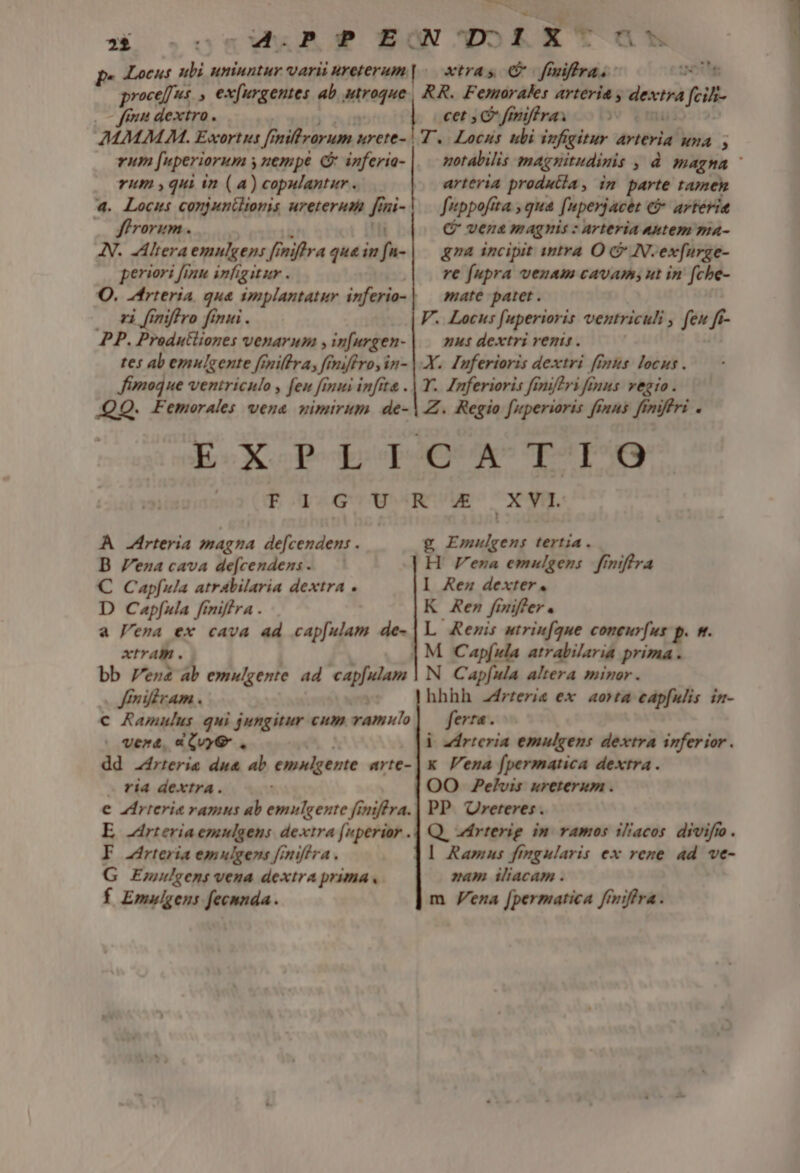 22 APPENDIX
p. Locus ubi uniuntur varii ureterum
proceſſus, exſurgentes ab utroque
ſinu dextro.
MMMM. Exortus ſiniſtrorum urete-
rum ſuperiorum, nempè & inferio-
rum, qui in (a) copulantur.
a. Locus conjunctionis ureterum ſini-
ſtrorum.
N. Altera emulgens ſiniſtra quæ in ſu-
periori ſinu infigitur.
O. Arteria quæ implantatur inferio-
ri ſiniſtro ſinui.
PP. Productiones venarum, inſurgen-
tes ab emulgente ſiniſtra, ſiniſtro, in-
fimoque ventriculo, ſeu ſinui inſitæ.
QQ. Femorales venæ nimirum de-
xtra, & ſiniſtra.
RR. Femorales arteriæ, dextra ſcili-
cet, & ſiniſtra.
T. Locus ubi infigitur arteria una,
notabilis magnitudinis, à magna
arteria producta, in parte tamen
ſuppoſita, quæ ſuperjacet & arteriæ
& venæ magnis: arteria autem ma-
gna incipit intra O & N. exſurge-
re ſupra venam cavam, ut in ſche-
mate patet.
V. Locus ſuperioris ventriculi, ſeu ſi-
nus dextri renis.
X. Inferioris dextri ſinus locus.
Y. Inferioris ſiniſtri ſinus regio.
Z. Regio ſuperioris ſinus ſiniſtri.
EXPLICATIO
FIGURÆ XVI.
A Arteria magna deſcendens.
B Vena cava deſcendens.
C Capſula atrabilaria dextra.
D Capſula ſiniſtra.
a Vena ex cava ad capſulam de-
xtram.
bb Venæ ab emulgente ad capſulam
ſiniſtram.
c Ramulus qui jungitur cum ramulo
venæ, ἀζυγ@.
dd Arteriæ duæ ab emulgente arte-
ria dextra.
e Arteriæ ramus ab emulgente ſiniſtra.
E Arteria emulgens dextra ſuperior.
F Arteria emulgens ſiniſtra.
G Emulgens vena dextra prima.
f Emulgens ſecunda.
g Emulgens tertia.
H Vena emulgens ſiniſtra
I Ren dexter.
K Ren ſiniſter.
L Renis utriuſque concurſus p. n.
M Capſula atrabilaria prima.
N Capſula altera minor.
hhhh Arteriæ ex aorta capſulis in-
ſertæ.
i Arteria emulgens dextra inferior.
κ Vena ſpermatica dextra.
OO Pelvis ureterum.
PP Ureteres.
Q Arteriæ in ramos iliacos diviſio.
l Ramus ſingularis ex rene ad ve-
nam iliacam.
m Vena ſpermatica ſiniſtra.